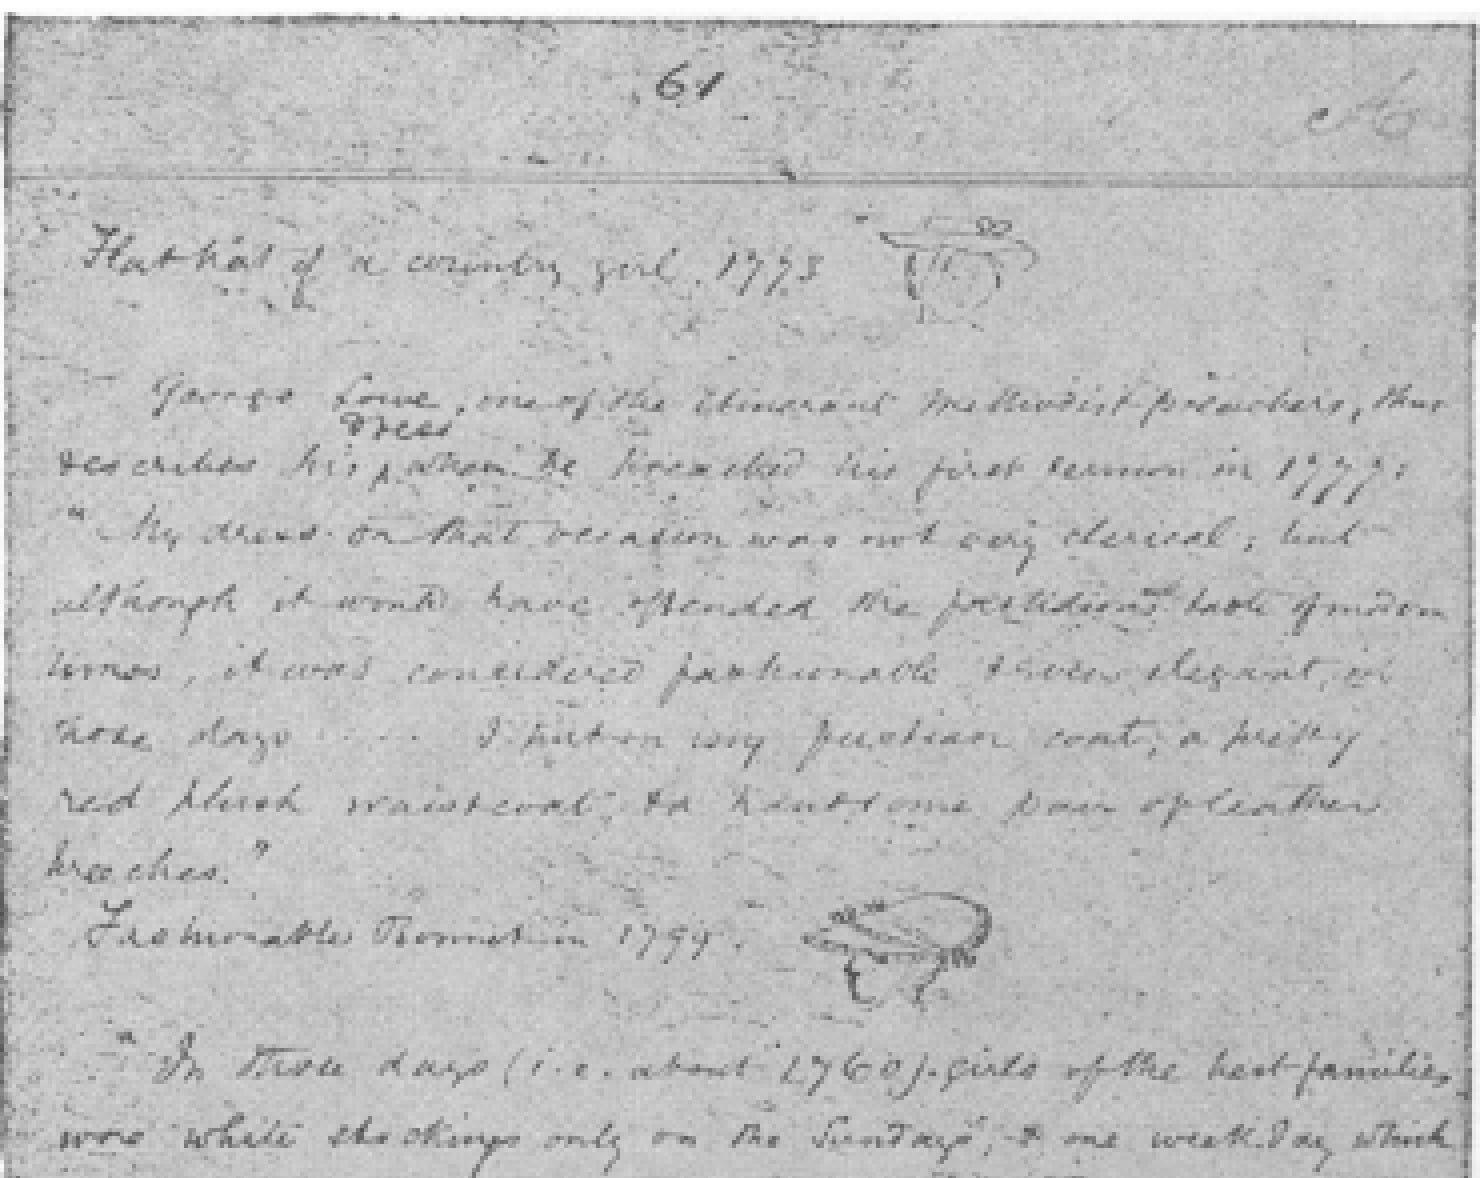 61
Flat hat of a country girl. 1773
George Lowe, one of the itinerant Methodist preachers, thus
dress
describes his ^ when he preached his first sermon in 1777:
"My dress on that occasion was not very clerical; but
although it would have offended the fastidious taste of modern
times, it was considered fashionable & even elegant, in
those days ..... I put on my fustian coat, a pretty
red plush waistcoat, & a handsome pair of leather
breeches."
Fashionable Bonnet in 179
"In those days (i.e. about 1760) girls of the best families
wore white stockings only on the Sundays, & one week day which